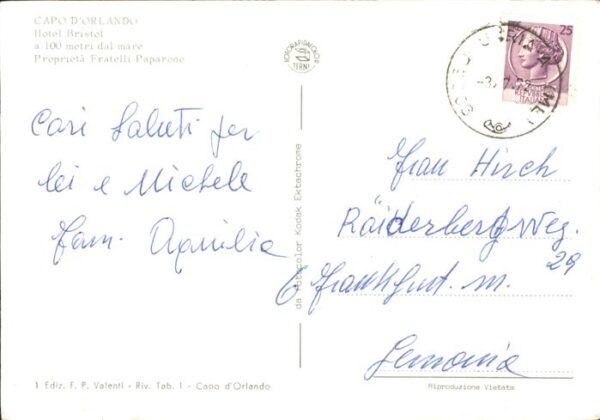 CAPO D'ORLANDO
Hotel Bristol
a 100 metri dal mare
Proprietà Fratelli Paparone
TERNI
25
Cari Saluti per
lei e Michele
Fam. Aquilia
da Fotocolor Kodak Ektachrome
Frau Hirch
Räiderbergweg.
29
6 Frankfurt. m.
Germania
1 Ediz. F. P. Valenti - Riv. Tab. 1 - Capo d'Orlando
Riproduzione Vietata